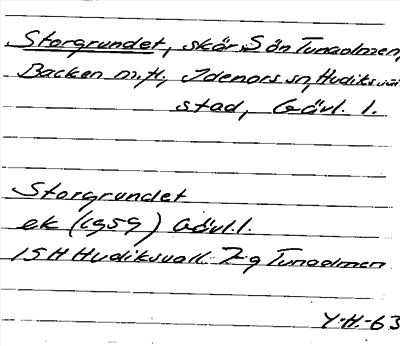 Storgrundet, skär S ön Tunaolmen,
Backen m.fl., Idenors sn, Hudiksvalls
stad, Gävl. l.
Storgrundet
ek (1959) Gävl. l.
15H Hudiksvall 7g Tunaolmen
Y.H.-63